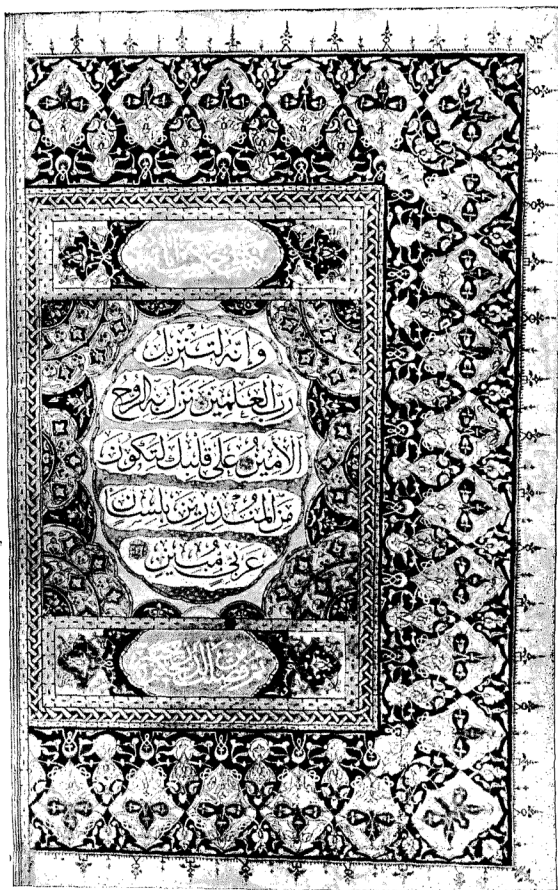 وَإِنَّهُ لَتَنْزِيلُ
رَبِّ الْعَٰلَمِينَ نَزَلَ بِهِ الرُّوحُ
الْأَمِينُ عَلَىٰ قَلْبِكَ لِتَكُونَ
مِنَ الْمُنْذِرِينَ بِلِسَانٍ
عَرَبِيٍّ مُبِينٍ